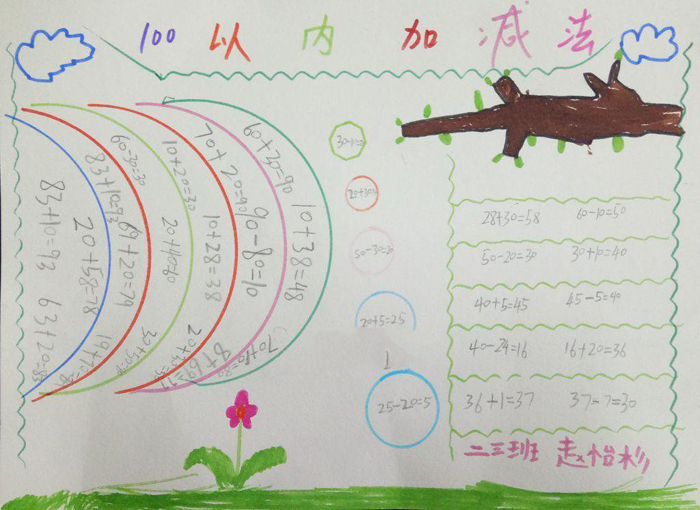 100 以内加减法
60+30=90
10+38=48
70+20=90
90-80=10
10+20=30
10+28=38
60-30=30
20+40=60
83+10=93
61+20=79
20+58=78
83+10=93
63+20=83
70+10=80
50-30=20
20+5=25
25-20=5
28+30=58 60-10=50
50-20=30 30+10=40
40+5=45 45-5=40
40-24=16 16+20=36
36+1=37 37-7=30
二三班 赵怡杉